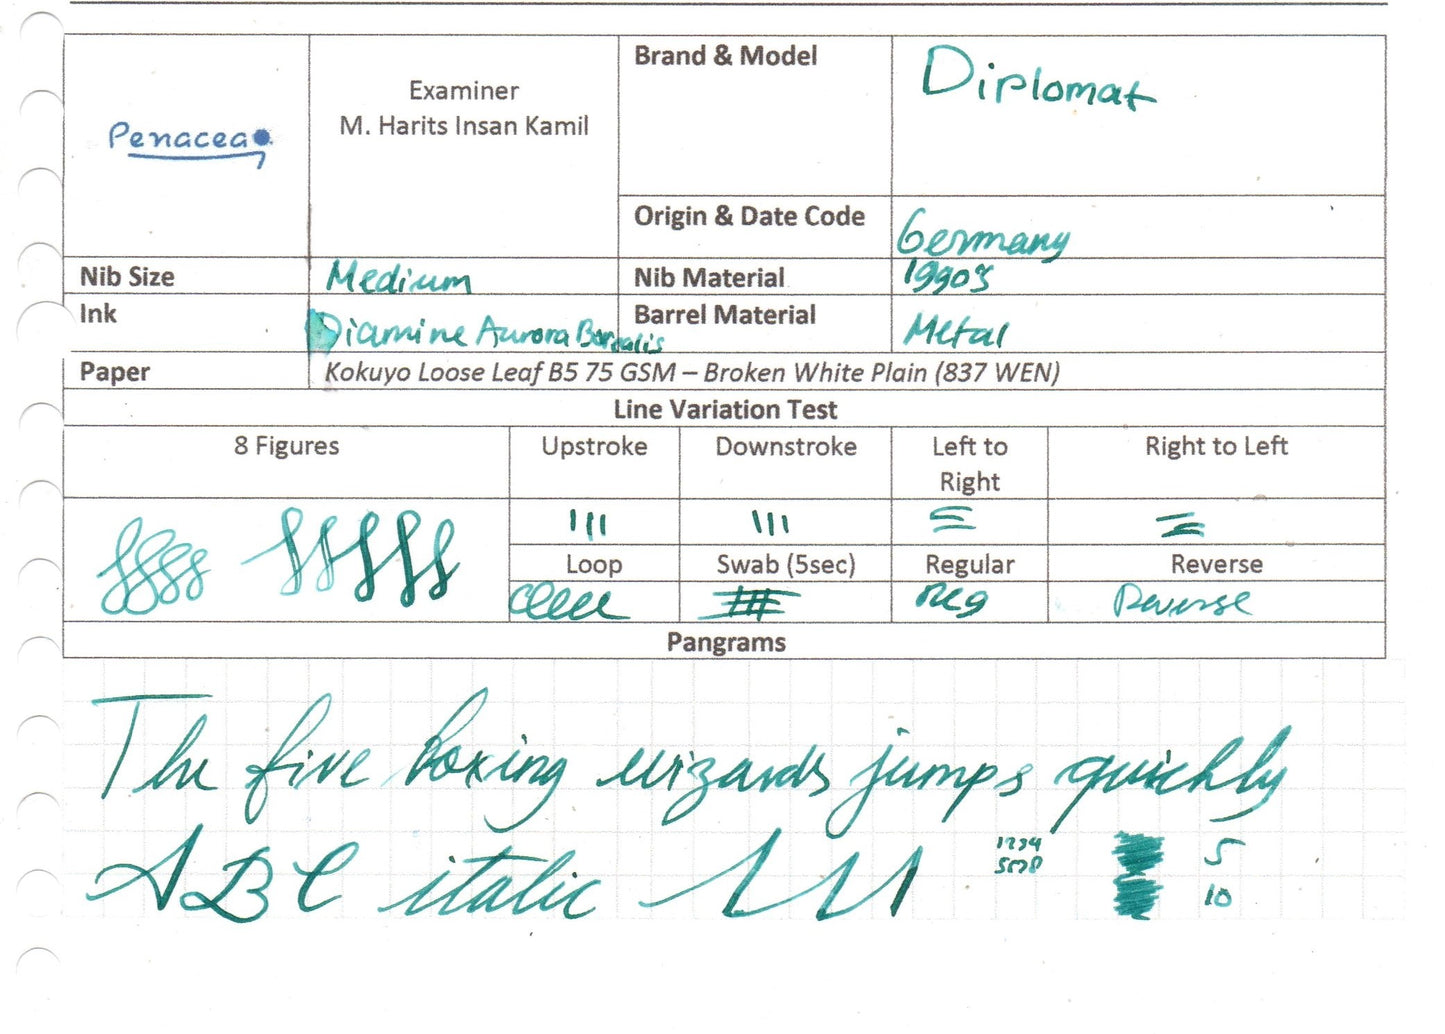 Penacea
Examiner
M. Harits Insan Kamil
Brand & Model
Diplomat
Origin & Date Code
Germany
Nib Size
Medium
Nib Material
1990's
Ink
Diamine Aurora Borealis
Barrel Material
Metal
Paper
Kokuyo Loose Leaf B5 75 GSM – Broken White Plain (837 WEN)
Line Variation Test
8 Figures
Upstroke
Downstroke
Left to
Right
Right to Left
Loop
Swab (5sec)
Regular
Reverse
Reg
Reverse
Pangrams
The five boxing wizards jumps quickly
ABC italic
1234
5678
5
10